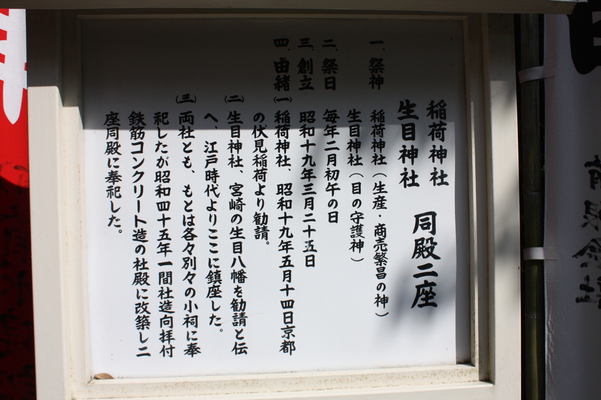 稲荷神社
生目神社
同殿二座
一、祭神 稲荷神社(生産・商売繁昌の神)
生目神社(目の守護神)
二、祭日 毎年二月初午の日
三、創立 昭和十九年三月二十五日
四、由緒(一)稲荷神社、昭和十九年五月十四日京都
の伏見稲荷より勧請。
(二)生目神社、宮崎の生目八幡を勧請と伝
へ、江戸時代よりここに鎮座した。
(三)両社とも、もとは各々別々の小祠に奉
祀したが昭和四十五年一間社造向拝付
鉄筋コンクリート造の社殿に改築し二
座同殿に奉祀した。